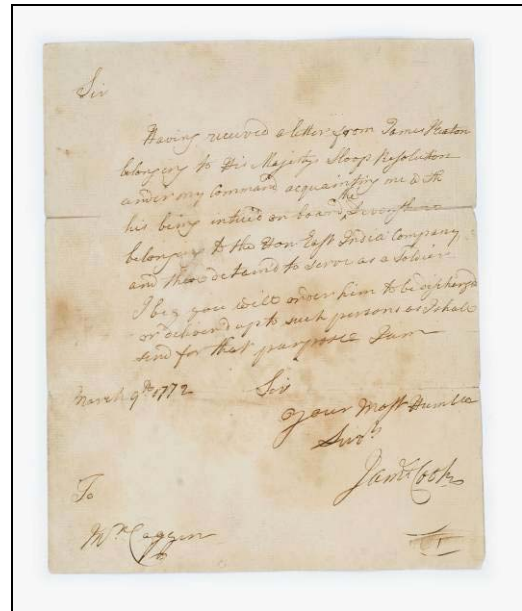 Sir
Having received a letter from James
belonging to His Majestys Sloop Resolution
under my Command acquainting me with
his being inticed on board the
belonging to the Hon East India Company
and there detain'd to serve as a Soldier
I beg you will order him to be discharged
or deliverd up to such persons as I shall
send for that purpose I am
March 9th 1772
Sir
your Most Humble
Servt
Jams Cook
To
Mr Coggin